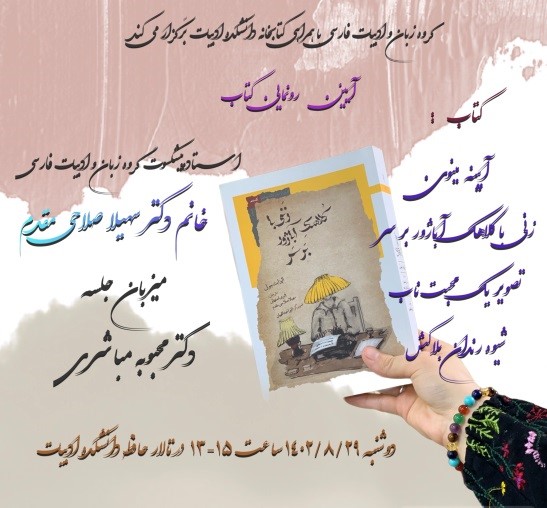 گروه زبان و ادبیات فارسی با همراهی کتابخانه دانشکده ادبیات برگزار می کند
آیین رونمایی کتاب
کتاب :
آیینه مینوی
زنی با کلاهک آباژور بر سر
تصویر یک محبت ناب
شیوه رندان بلاکش
استاد پیشکسوت گروه زبان و ادبیات فارسی
خانم دکتر سهیلا صلاحی مقدم
میزبان جلسه
دکتر محبوبه مباشری
زنی با
کلاهک آباژور
بر سر
دوشنبه ۱۴۰۲/۸/۲۹ ساعت ۱۵-۱۳ در تالار حافظ دانشکده ادبیات